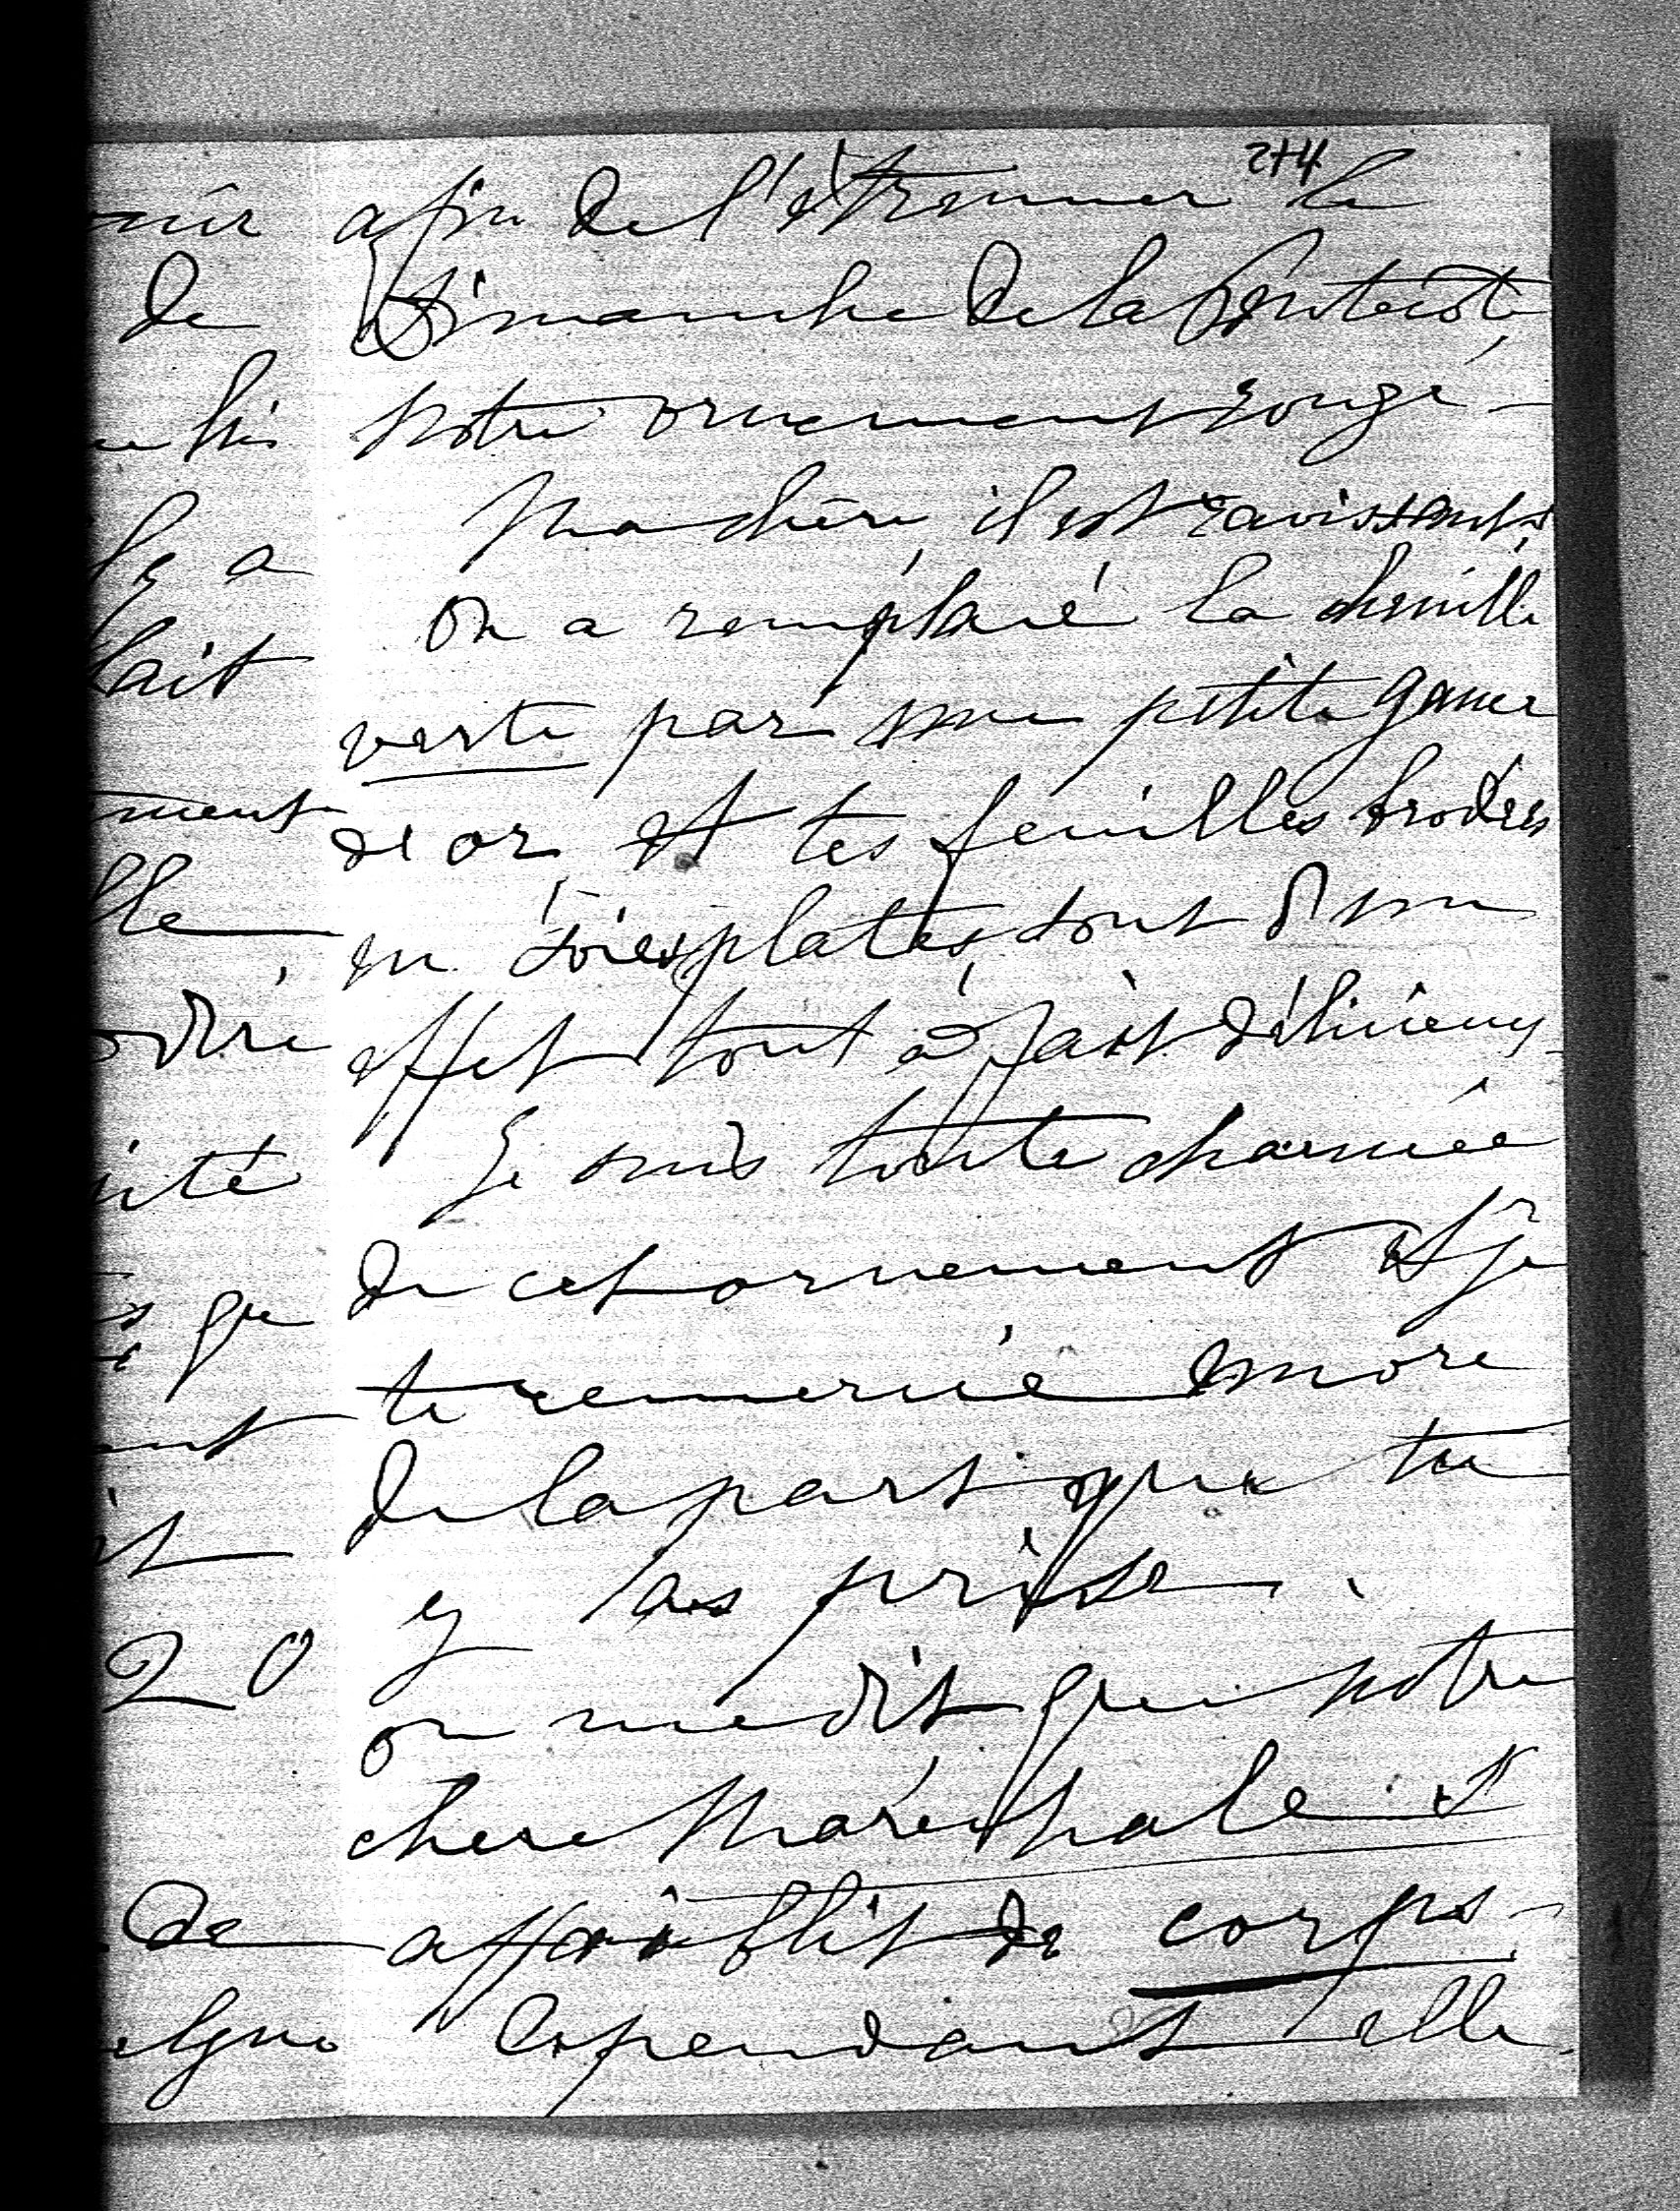 274
afin de l'étrenner le
Dimanche de la Pentecôte,
notre ornement rouge –
Ma chère, il est ravissant,
on a remplacé la chenille
verte par une petite ganse
d'or et tes feuilles brodées
en soies plates, sont d'un
effet tout à fait délicieux
Je suis toute charmée
de cet ornement et je
te remercie encore
de la part que tu
y as prise.
on me dit que notre
chere Maréchale s'
affaiblit de corps –
Cependant elle
de
lait
ment
lle
ité
que
it
20
de